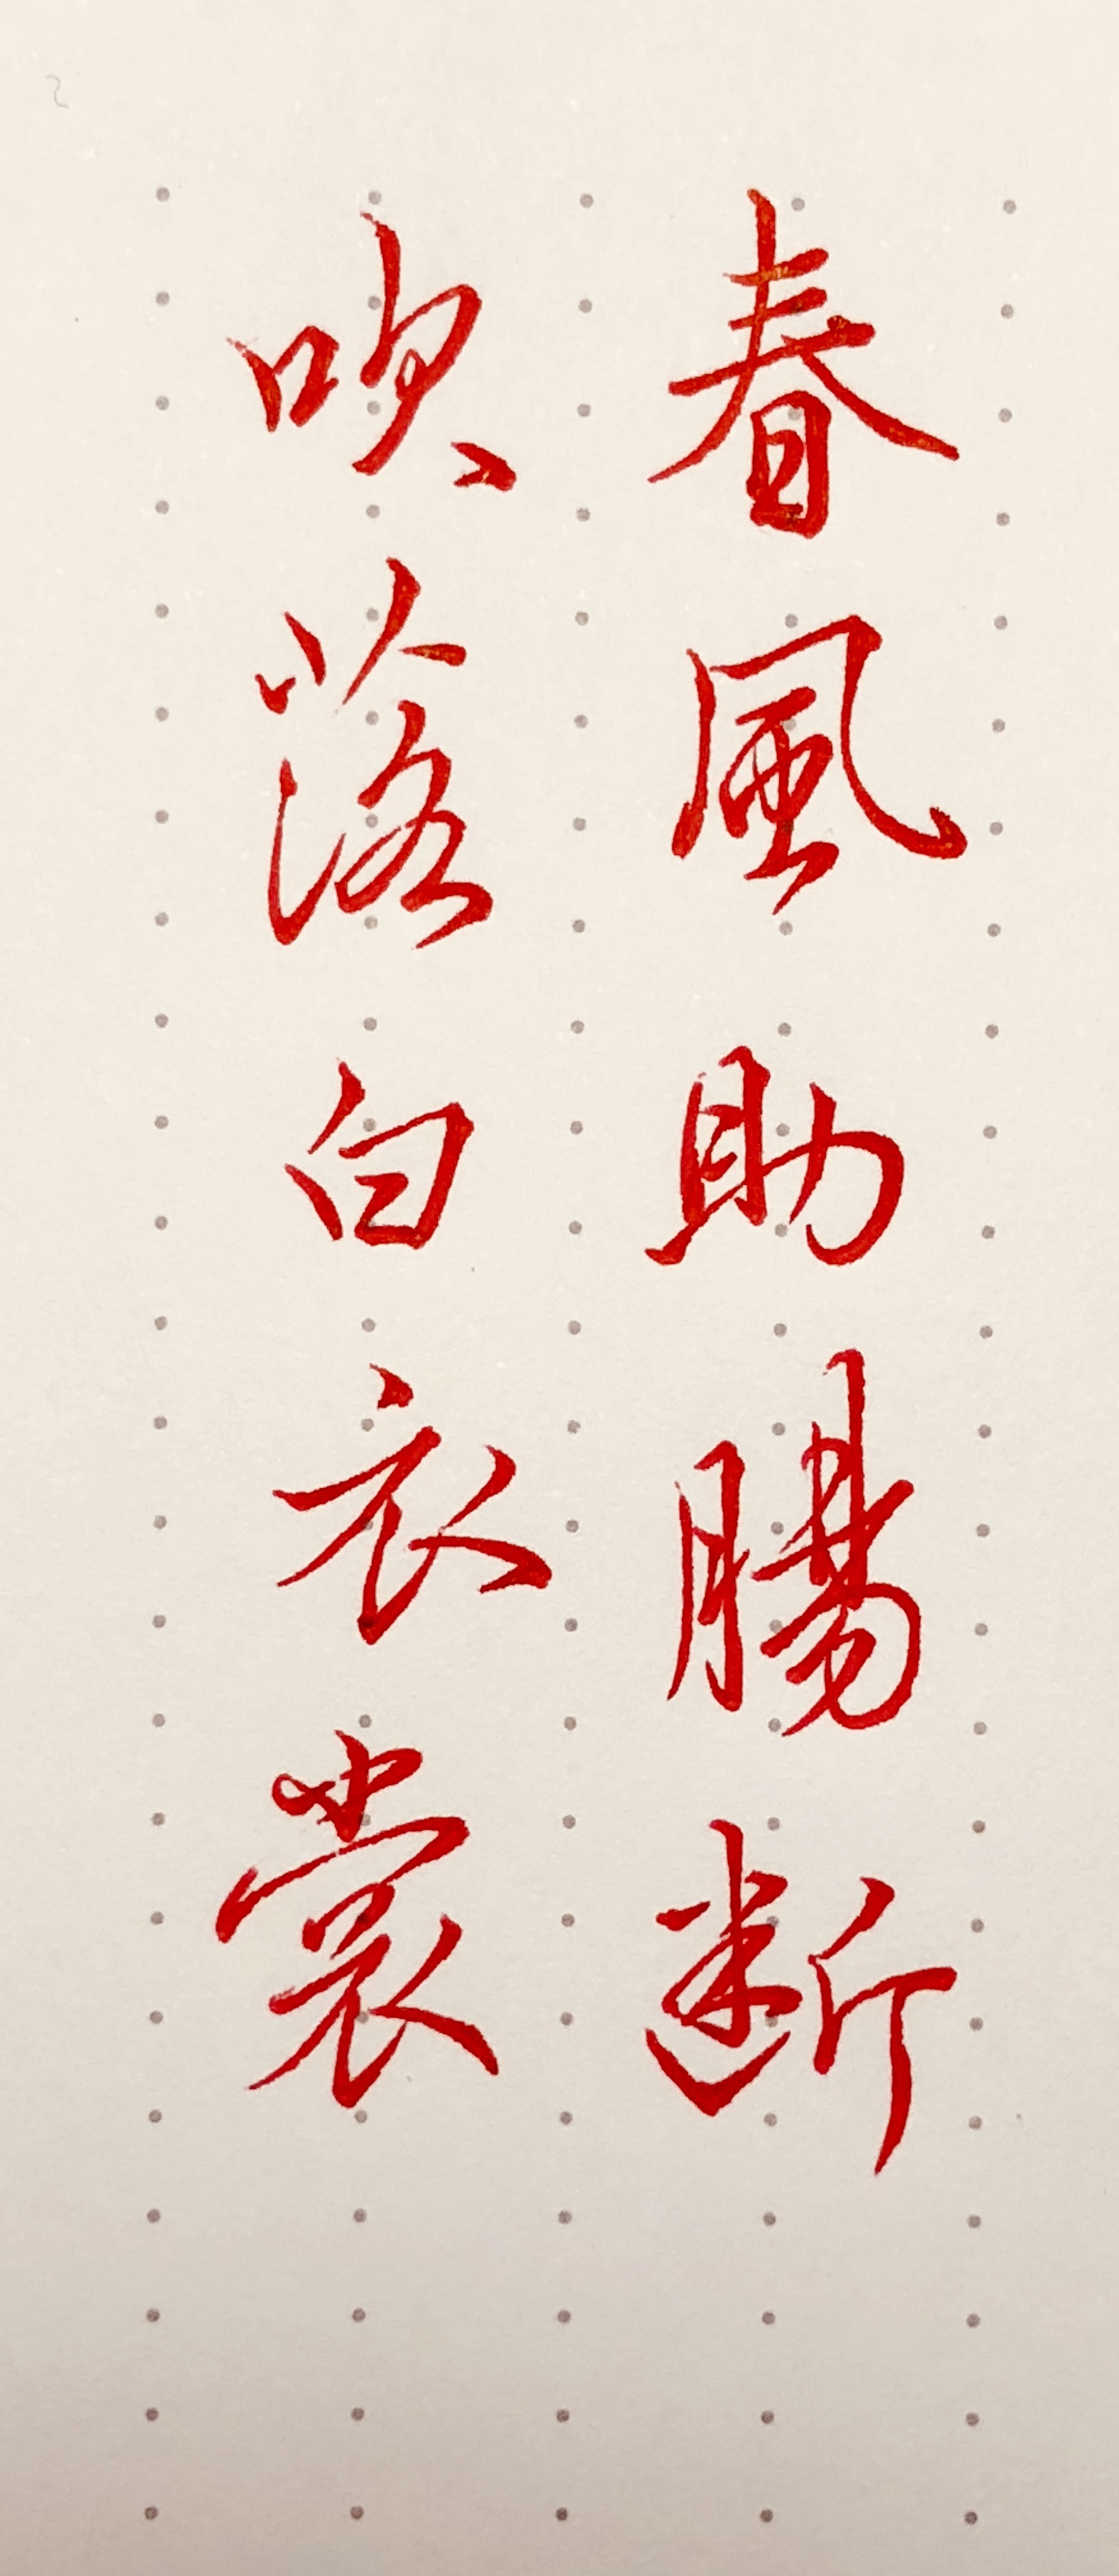 春風助腸断
吹落白衣裳